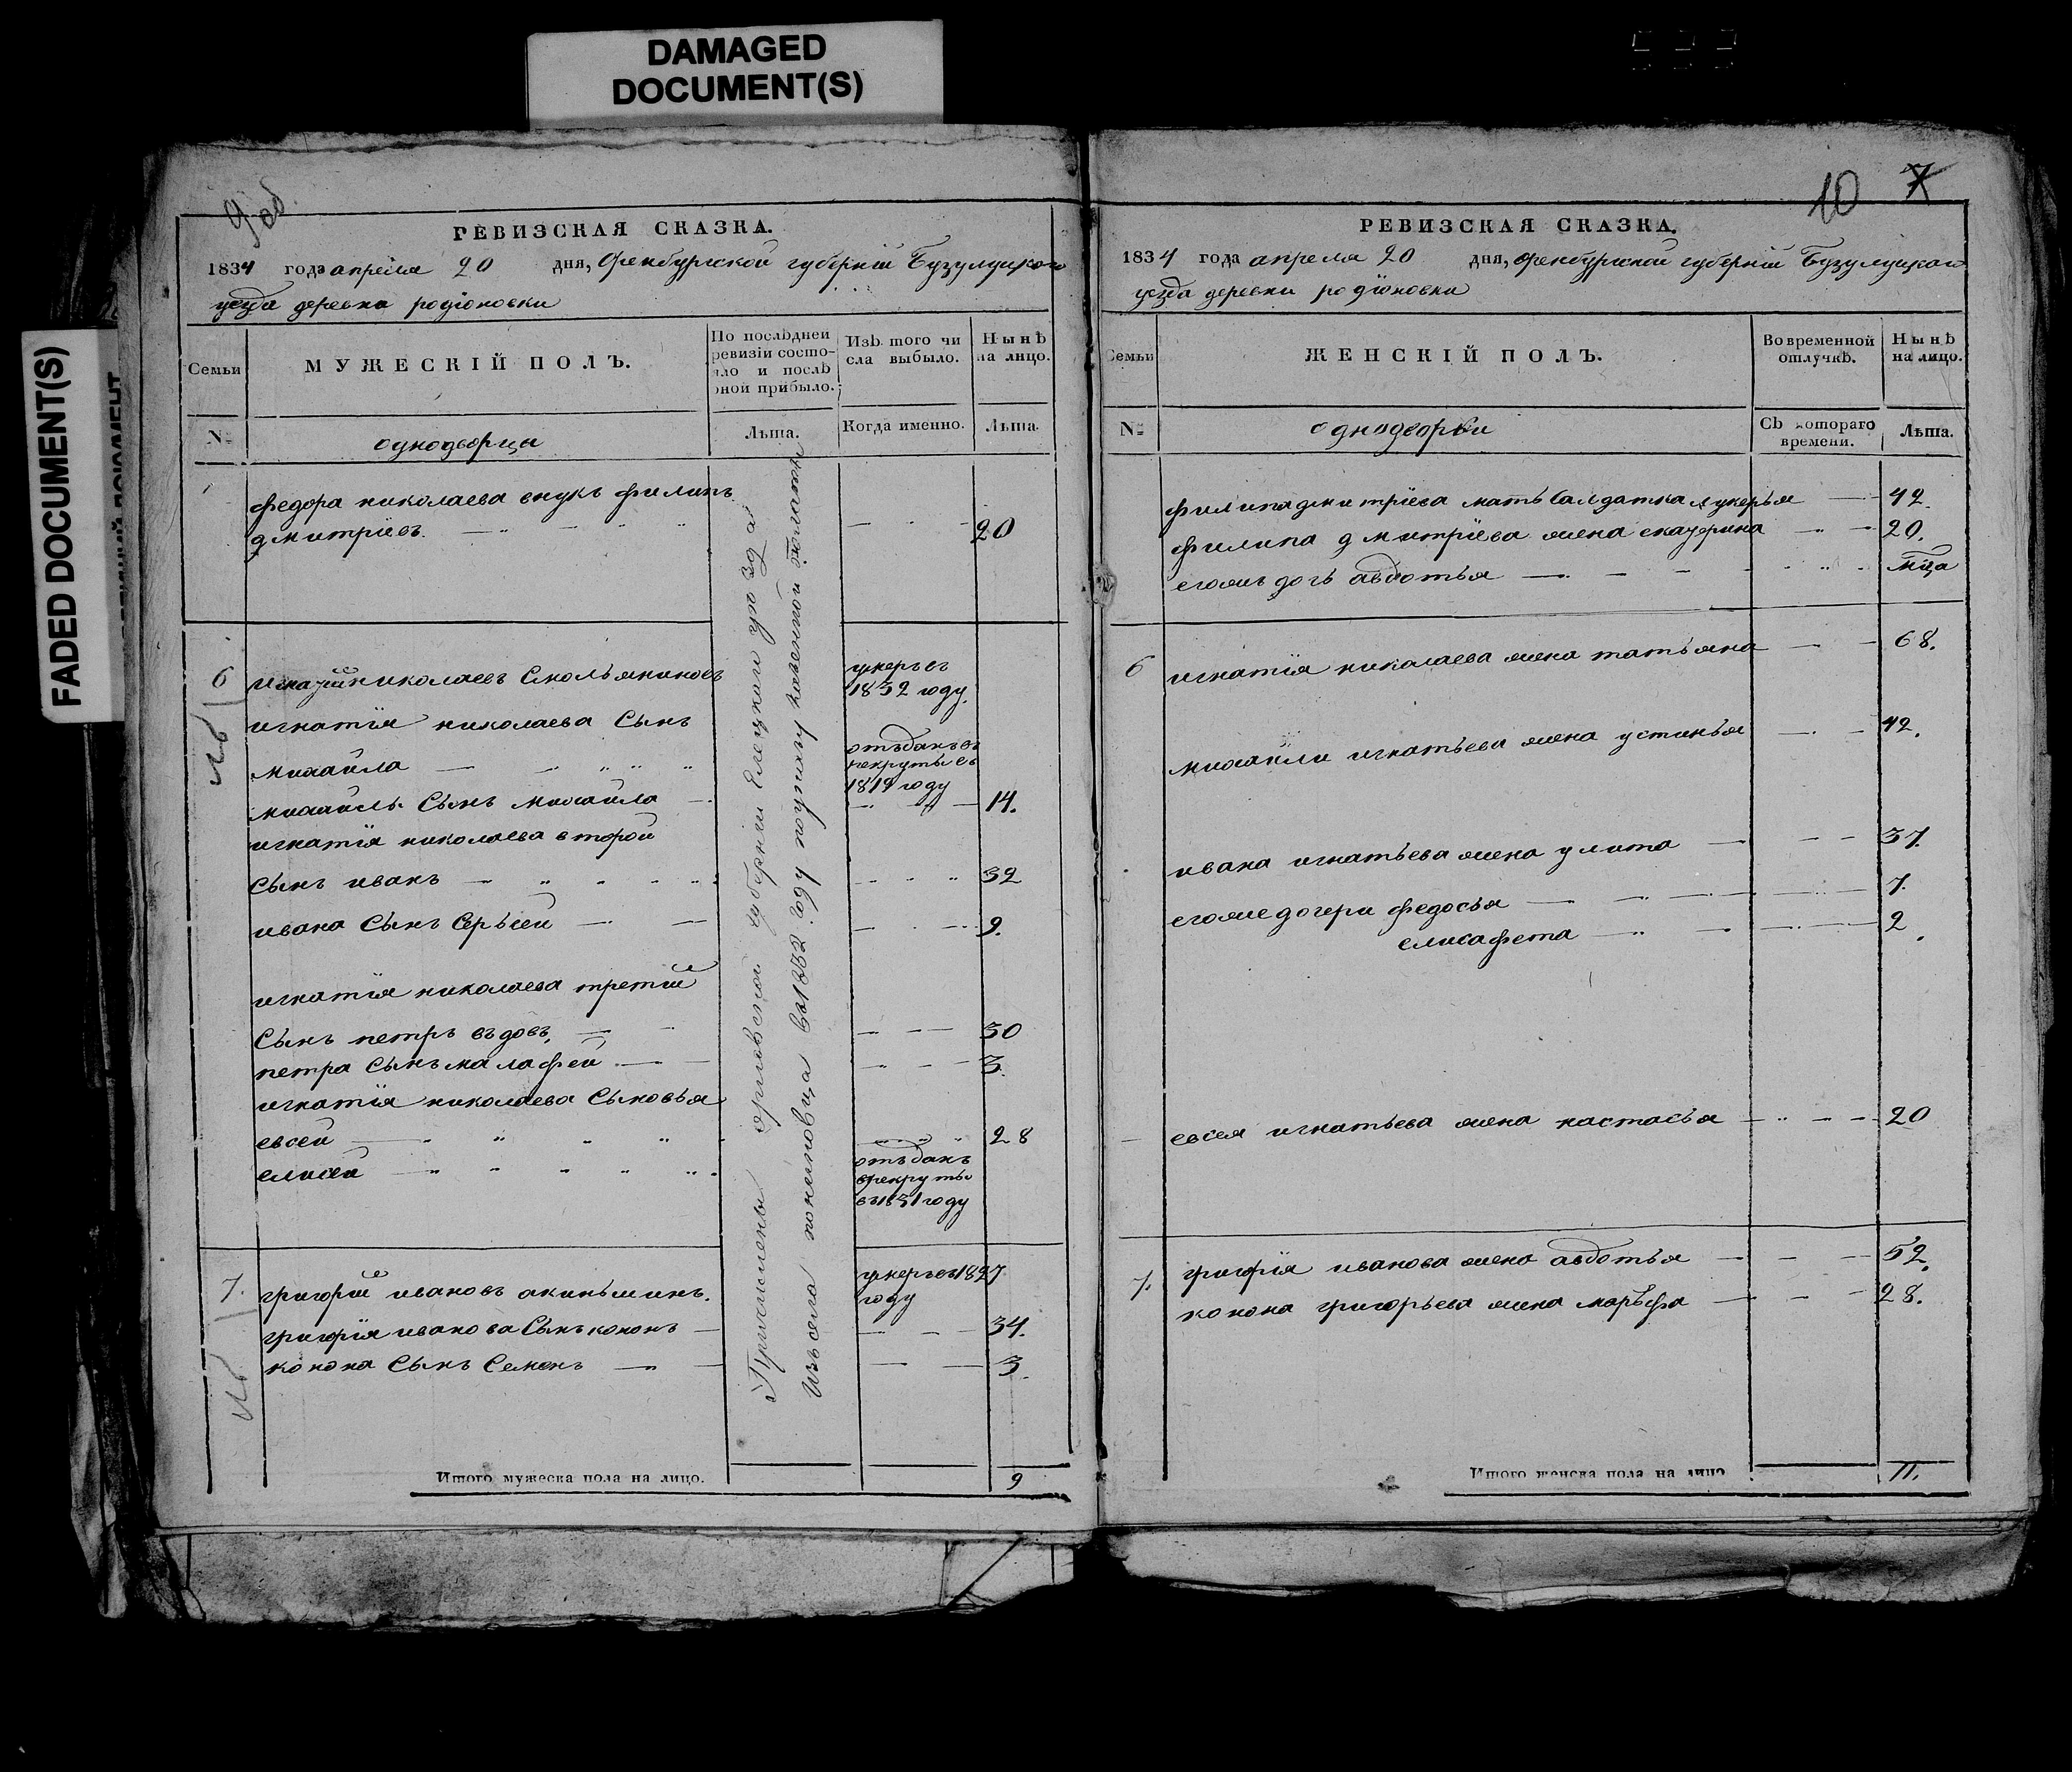 DAMAGED
DOCUMENT(S)
FADED DOCUMENT(S)
9 об.
РЕВИЗСКАЯ СКАЗКА.
1834 года апреля 20 дня, Оренбургской губернiи Бузулуцкого
уезда деревна родiоновки
Семьи
МУЖЕСКІЙ ПОЛЪ.
По послѣдней
ревизіи состо-
яло и послѣ
оной прибыло.
Изъ того чи
сла выбыло.
Нынѣ
на лицо.
№
однодворцы
Лѣта.
Когда именно.
Лѣта.
федора николаева внукъ филипъ
дмитрiевъ. 20
6 игнатiй николаевъ Смольяниновъ
умеръ въ
1832 году.
игнатiя николаева Сынъ
михаила
отъданъ въ
рекруты въ
1819 году
михаилы Сынъ михаила 14.
игнатiя николаева второй
Сынъ иванъ 32
ивана Сынъ Сергѣй 9.
игнатiя николаева третiй
Сынъ петръ въдовъ, 30
петра Сынъ малафей 3.
игнатiя николаева Сыновья
евсей 28
елисей
отъданъ
врекруты
въ 1831 году
7. григорiй ивановъ акиньшинъ.
умеръ въ 1827
году
григорiя иванова Сынъ кононъ 34.
конона Сынъ Семенъ 3.
Причислены орловской губернiи Елецкого уезда
Изъ села въ 1832 году по указу казенной палаты
Итого мужеска пола на лицо. 9
10 7
РЕВИЗСКАЯ СКАЗКА.
1834 года апреля 20 дня, Оренбургской губернiи Бузулуцкаго
уезда деревни родiоновки
Семьи
ЖЕНСКІЙ ПОЛЪ.
Во временной
отлучкѣ.
Нынѣ
на лицо.
№
однодворки
Съ котораго
времени.
Лѣта.
филипа дмитрiева мать Салдатка лукерья 42.
филипа дмитрiева жена екатерина 20.
егожъ дочь авдотья мца
6 игнатiя николаева жена татьяна 68.
михайли игнатьева жена устинья 42.
ивана игнатьева жена улита 37.
егоже дочери федосья 7.
елисафета 2
евсея игнатьева жена настасья 20
7. григорiя иванова жена авдотья 52.
конона григорьева жена марьфа 28.
Итого женска пола на лицо 11.